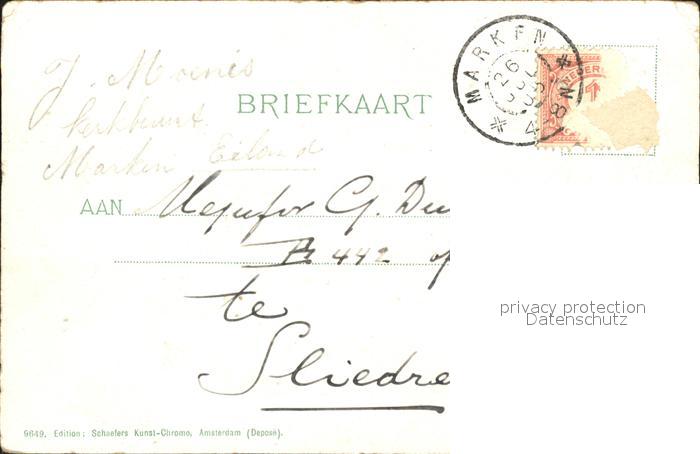 J. Moenis
Kerkbuurt
Marken Eiland
BRIEFKAART
MARKEN
26
4-8 N
NEDER
1
AAN Mejufvr G. Du
A 442 of
te
Sliedre
privacy protection
Datenschutz
9649, Edition: Schaefers Kunst-Chromo, Amsterdam (Deposé).